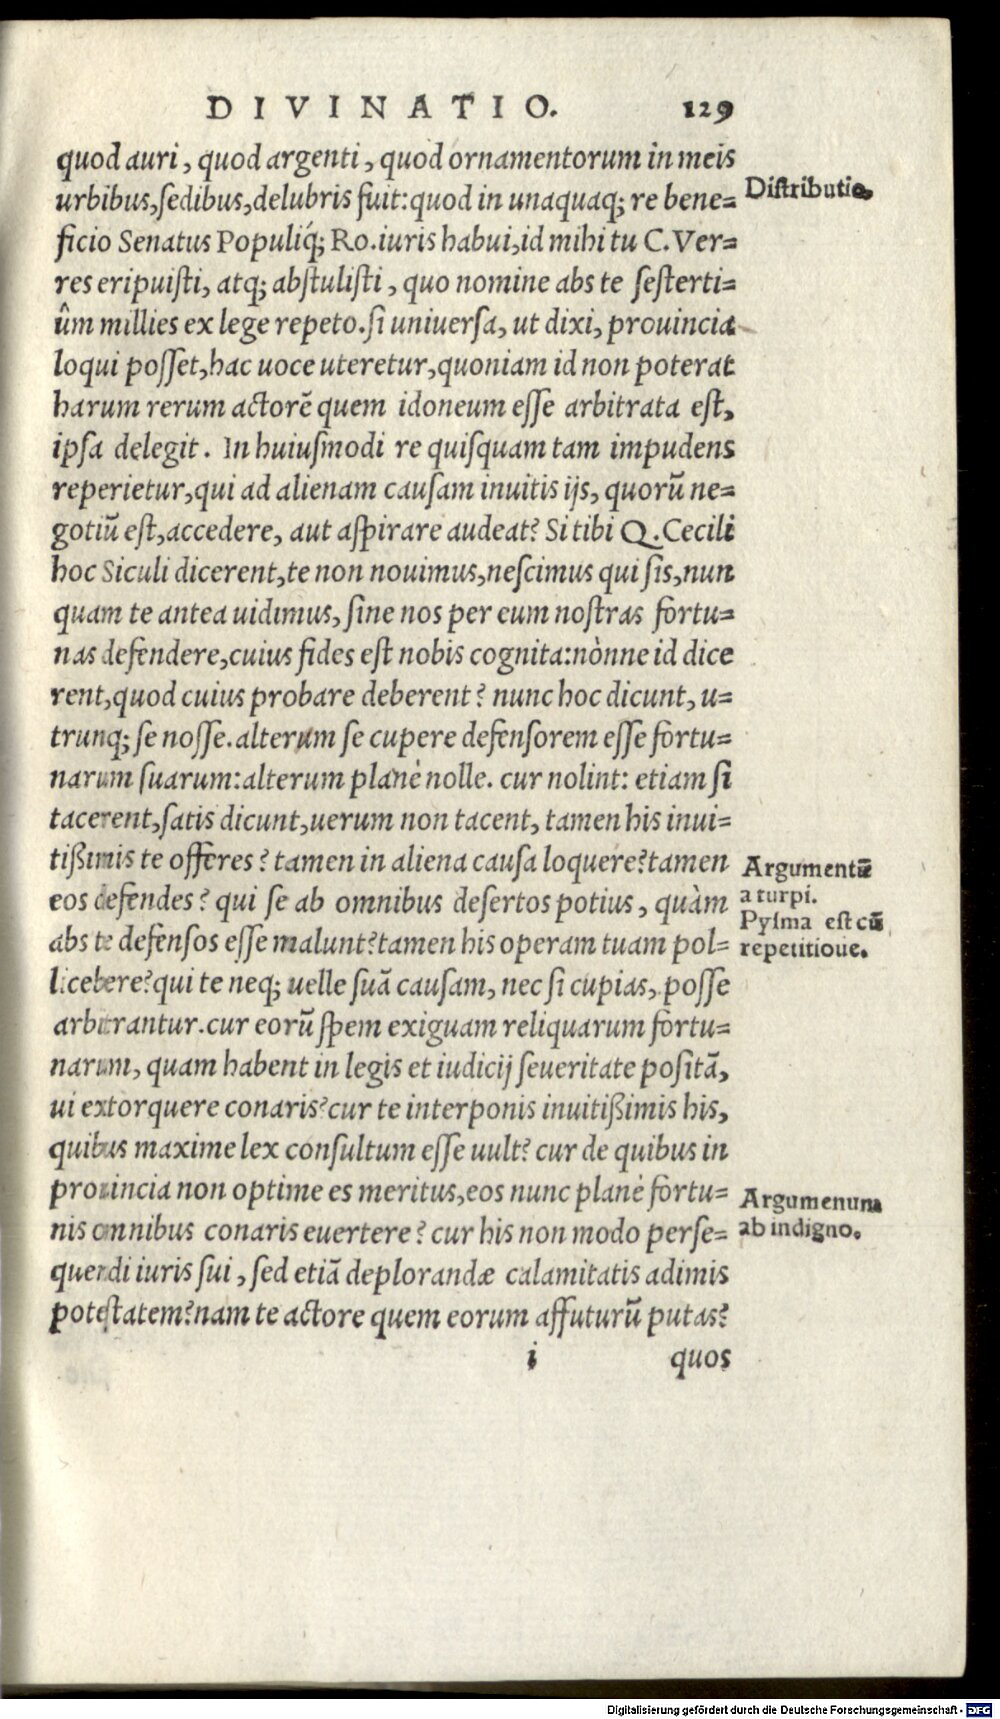 DIVINATIO. 129
quod auri, quod argenti, quod ornamentorum in meis
urbibus, sedibus, delubris fuit: quod in unaquaq; re bene=
Distributio.
ficio Senatus Populiq́; Ro. iuris habui, id mihi tu C. Ver=
res eripuisti, atq; abstulisti, quo nomine abs te sesterti=
ûm millies ex lege repeto. si uniuersa, ut dixi, prouincia
loqui posset, hac uoce uteretur, quoniam id non poterat
harum rerum actorẽ quem idoneum esse arbitrata est,
ipsa delegit. In huiusmodi re quisquam tam impudens
reperietur, qui ad alienam causam inuitis ijs, quorũ ne=
gotiũ est, accedere, aut aspirare audeat? Si tibi Q. Cecili
hoc Siculi dicerent, te non nouimus, nescimus qui sis, nun
quam te antea uidimus, sine nos per eum nostras fortu=
nas defendere, cuius fides est nobis cognita: nònne id dice
rent, quod cuius probare deberent? nunc hoc dicunt, u=
trunq; se nosse. alterum se cupere defensorem esse fortu=
narum suarum: alterum planè nolle. cur nolint: etiam si
tacerent, satis dicunt, uerum non tacent, tamen his inui=
tißimis te offeres? tamen in aliena causa loquere? tamen
eos defendes? qui se ab omnibus desertos potius, quàm
abs te defensos esse malunt? tamen his operam tuam pol=
Argumentũ
a turpi.
Pysma est cũ
repetitioue.
licebere? qui te neq; uelle suã causam, nec si cupias, posse
arbitrantur. cur eorũ spem exiguam reliquarum fortu=
narum, quam habent in legis et iudicij seueritate positã,
ui extorquere conaris? cur te interponis inuitißimis his,
quibus maxime lex consultum esse uult? cur de quibus in
prouincia non optime es meritus, eos nunc planè fortu=
nis omnibus conaris euertere? cur his non modo perse=
Argumenum
ab indigno.
quendi iuris sui, sed etiã deplorandæ calamitatis adimis
potestatem? nam te actore quem eorum affuturũ putas?
i quos
Digitalisierung gefördert durch die Deutsche Forschungsgemeinschaft - DFG